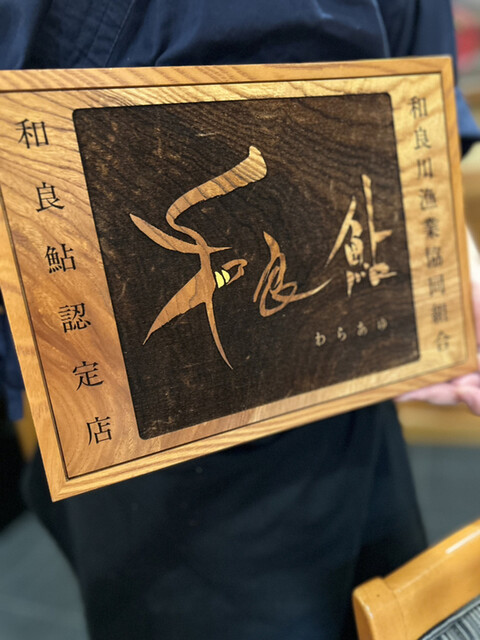 和良鮎認定店
和良鮎
わらあゆ
和良川漁業協同組合